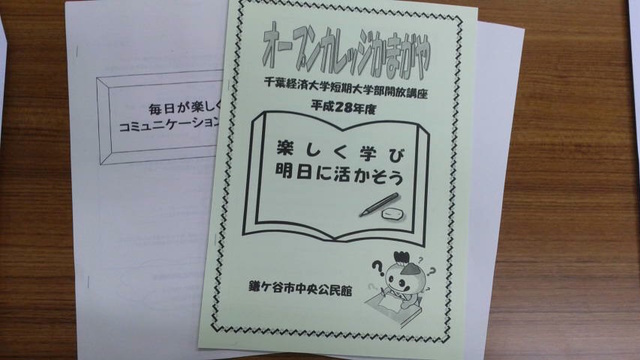 オープンカレッジかまがや
千葉経済大学短期大学部開放講座
平成28年度
楽しく学び
明日に活かそう
? ? ? ?
鎌ケ谷市中央公民館
毎日が楽しく
コミュニケーション